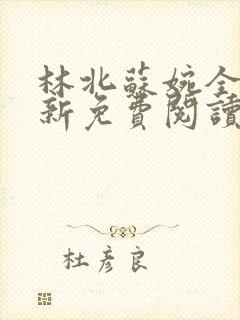 林北蘇婉全
新免費閱讀
杜彥良